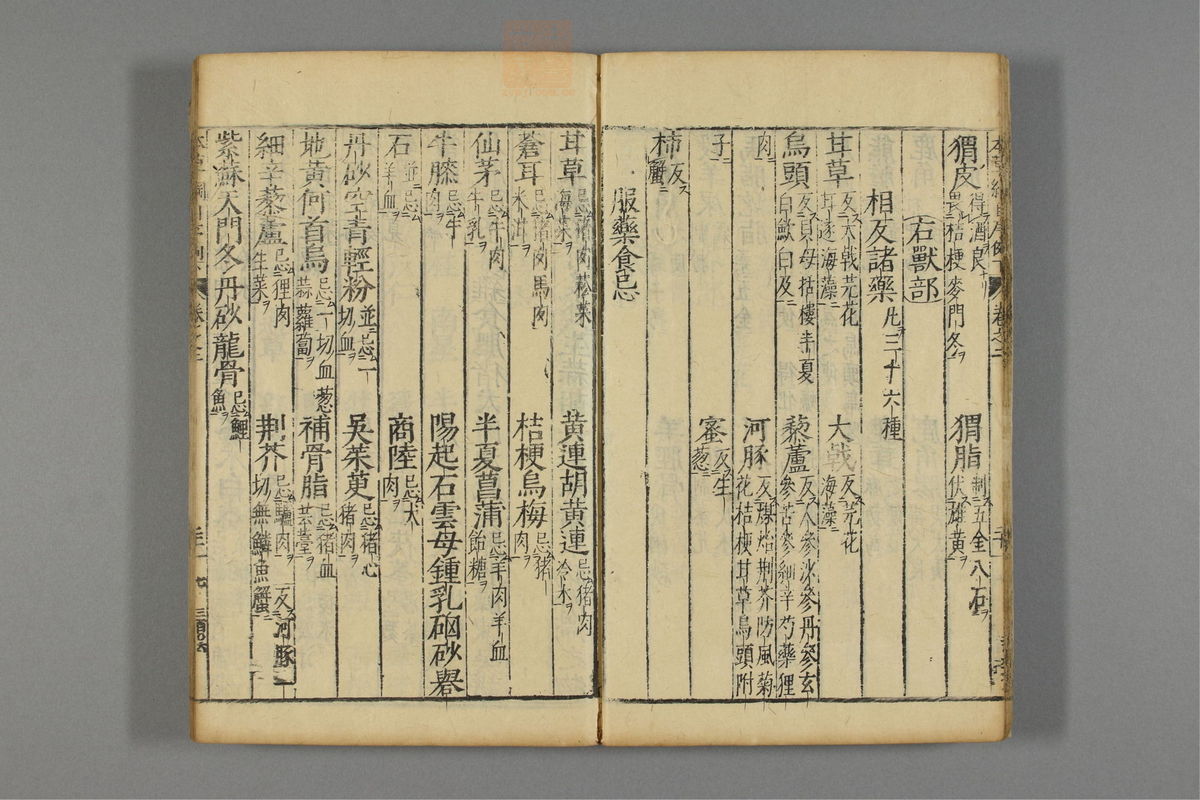 猬皮 得酒良 畏桔梗麥門冬 猬脂 制五金八石 伏雄黃
右獸部
相反諸藥 凡三十六種
甘草 反大戟芫花 甘遂海藻 大戟 反芫花 海藻
烏頭 反貝母栝樓半夏 白歛白及 藜蘆 反人參沙參丹參玄 參苦參細辛芍藥狸
肉 河豚 反煤炲荆芥防風菊 花桔梗甘草烏頭附
子 蜜 反生 葱
柿 反 蟹
服藥食忌
甘草 忌猪肉菘菜 海菜 黃連胡黃連 忌猪肉 冷水
蒼耳 忌猪肉馬肉 米泔 桔梗烏梅 忌猪 肉
仙茅 忌牛肉 牛乳 半夏菖蒲 忌羊肉羊血 飴糖
牛膝 忌牛 肉 陽起石雲母鍾乳硇砂礜
石 並忌 羊血 商陸 忌犬 肉
丹砂空青輕粉 並忌一 切血 吳茱萸 忌猪心 猪肉
地黃何首烏 忌一切血葱 蒜蘿蔔 補骨脂 忌猪血 芸薹
細辛藜蘆 忌狸肉 生菜 荆芥 忌驢肉 反河豚 一切無鱗魚蟹
紫蘇天門冬丹砂龍骨 忌鯉 魚